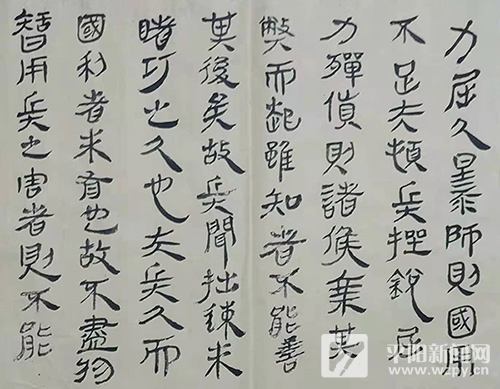 力屈久暴師則國用
不足夫頓兵挫銳屈
力殫貨則諸侯乘其
弊而起雖知者不能善
其後矣故兵聞拙速未
睹巧之久也夫兵久而
國利者未有也故不盡於
智用兵之害者則不能
平阳新闻网
www.wzpy.cn